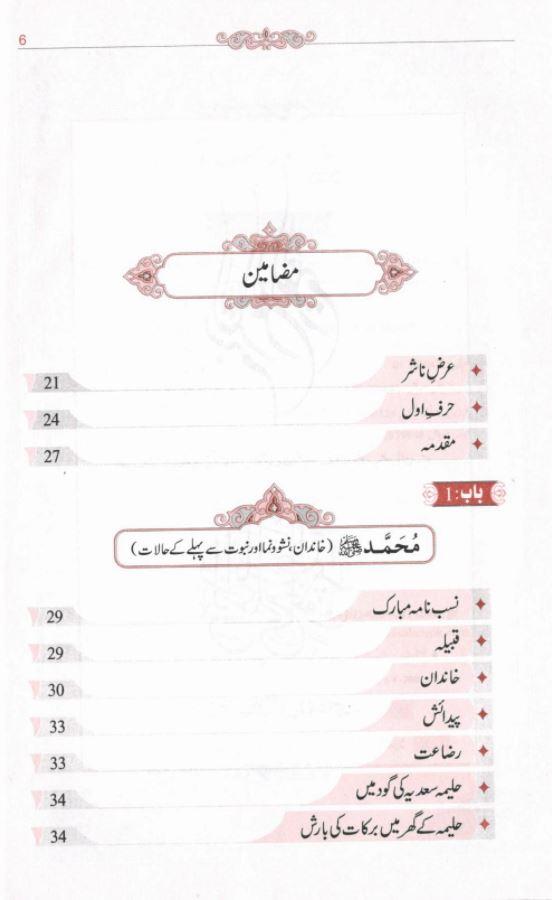 6
مضامین
عرضِ ناشر 21
حرفِ اول 24
مقدمہ 27
باب: 1
مُحَمَّد ﷺ (خاندان، نشوونما اور نبوت سے پہلے کے حالات)
نسب نامہ مبارک 29
قبیلہ 29
خاندان 30
پیدائش 33
رضاعت 33
حلیمہ سعدیہ کی گود میں 34
حلیمہ کے گھر میں برکات کی بارش 34